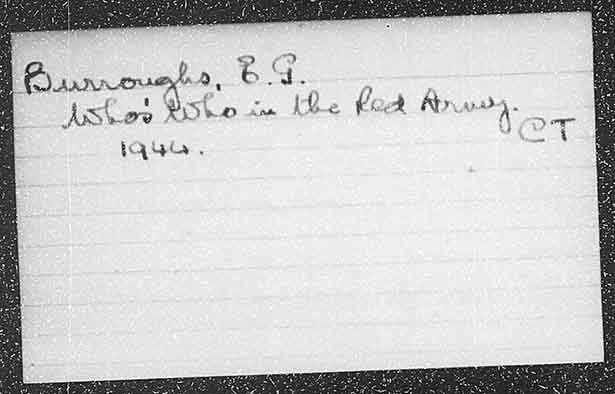 Burroughs, E. G.
Who's Who in the Red Army.
CT
1944.